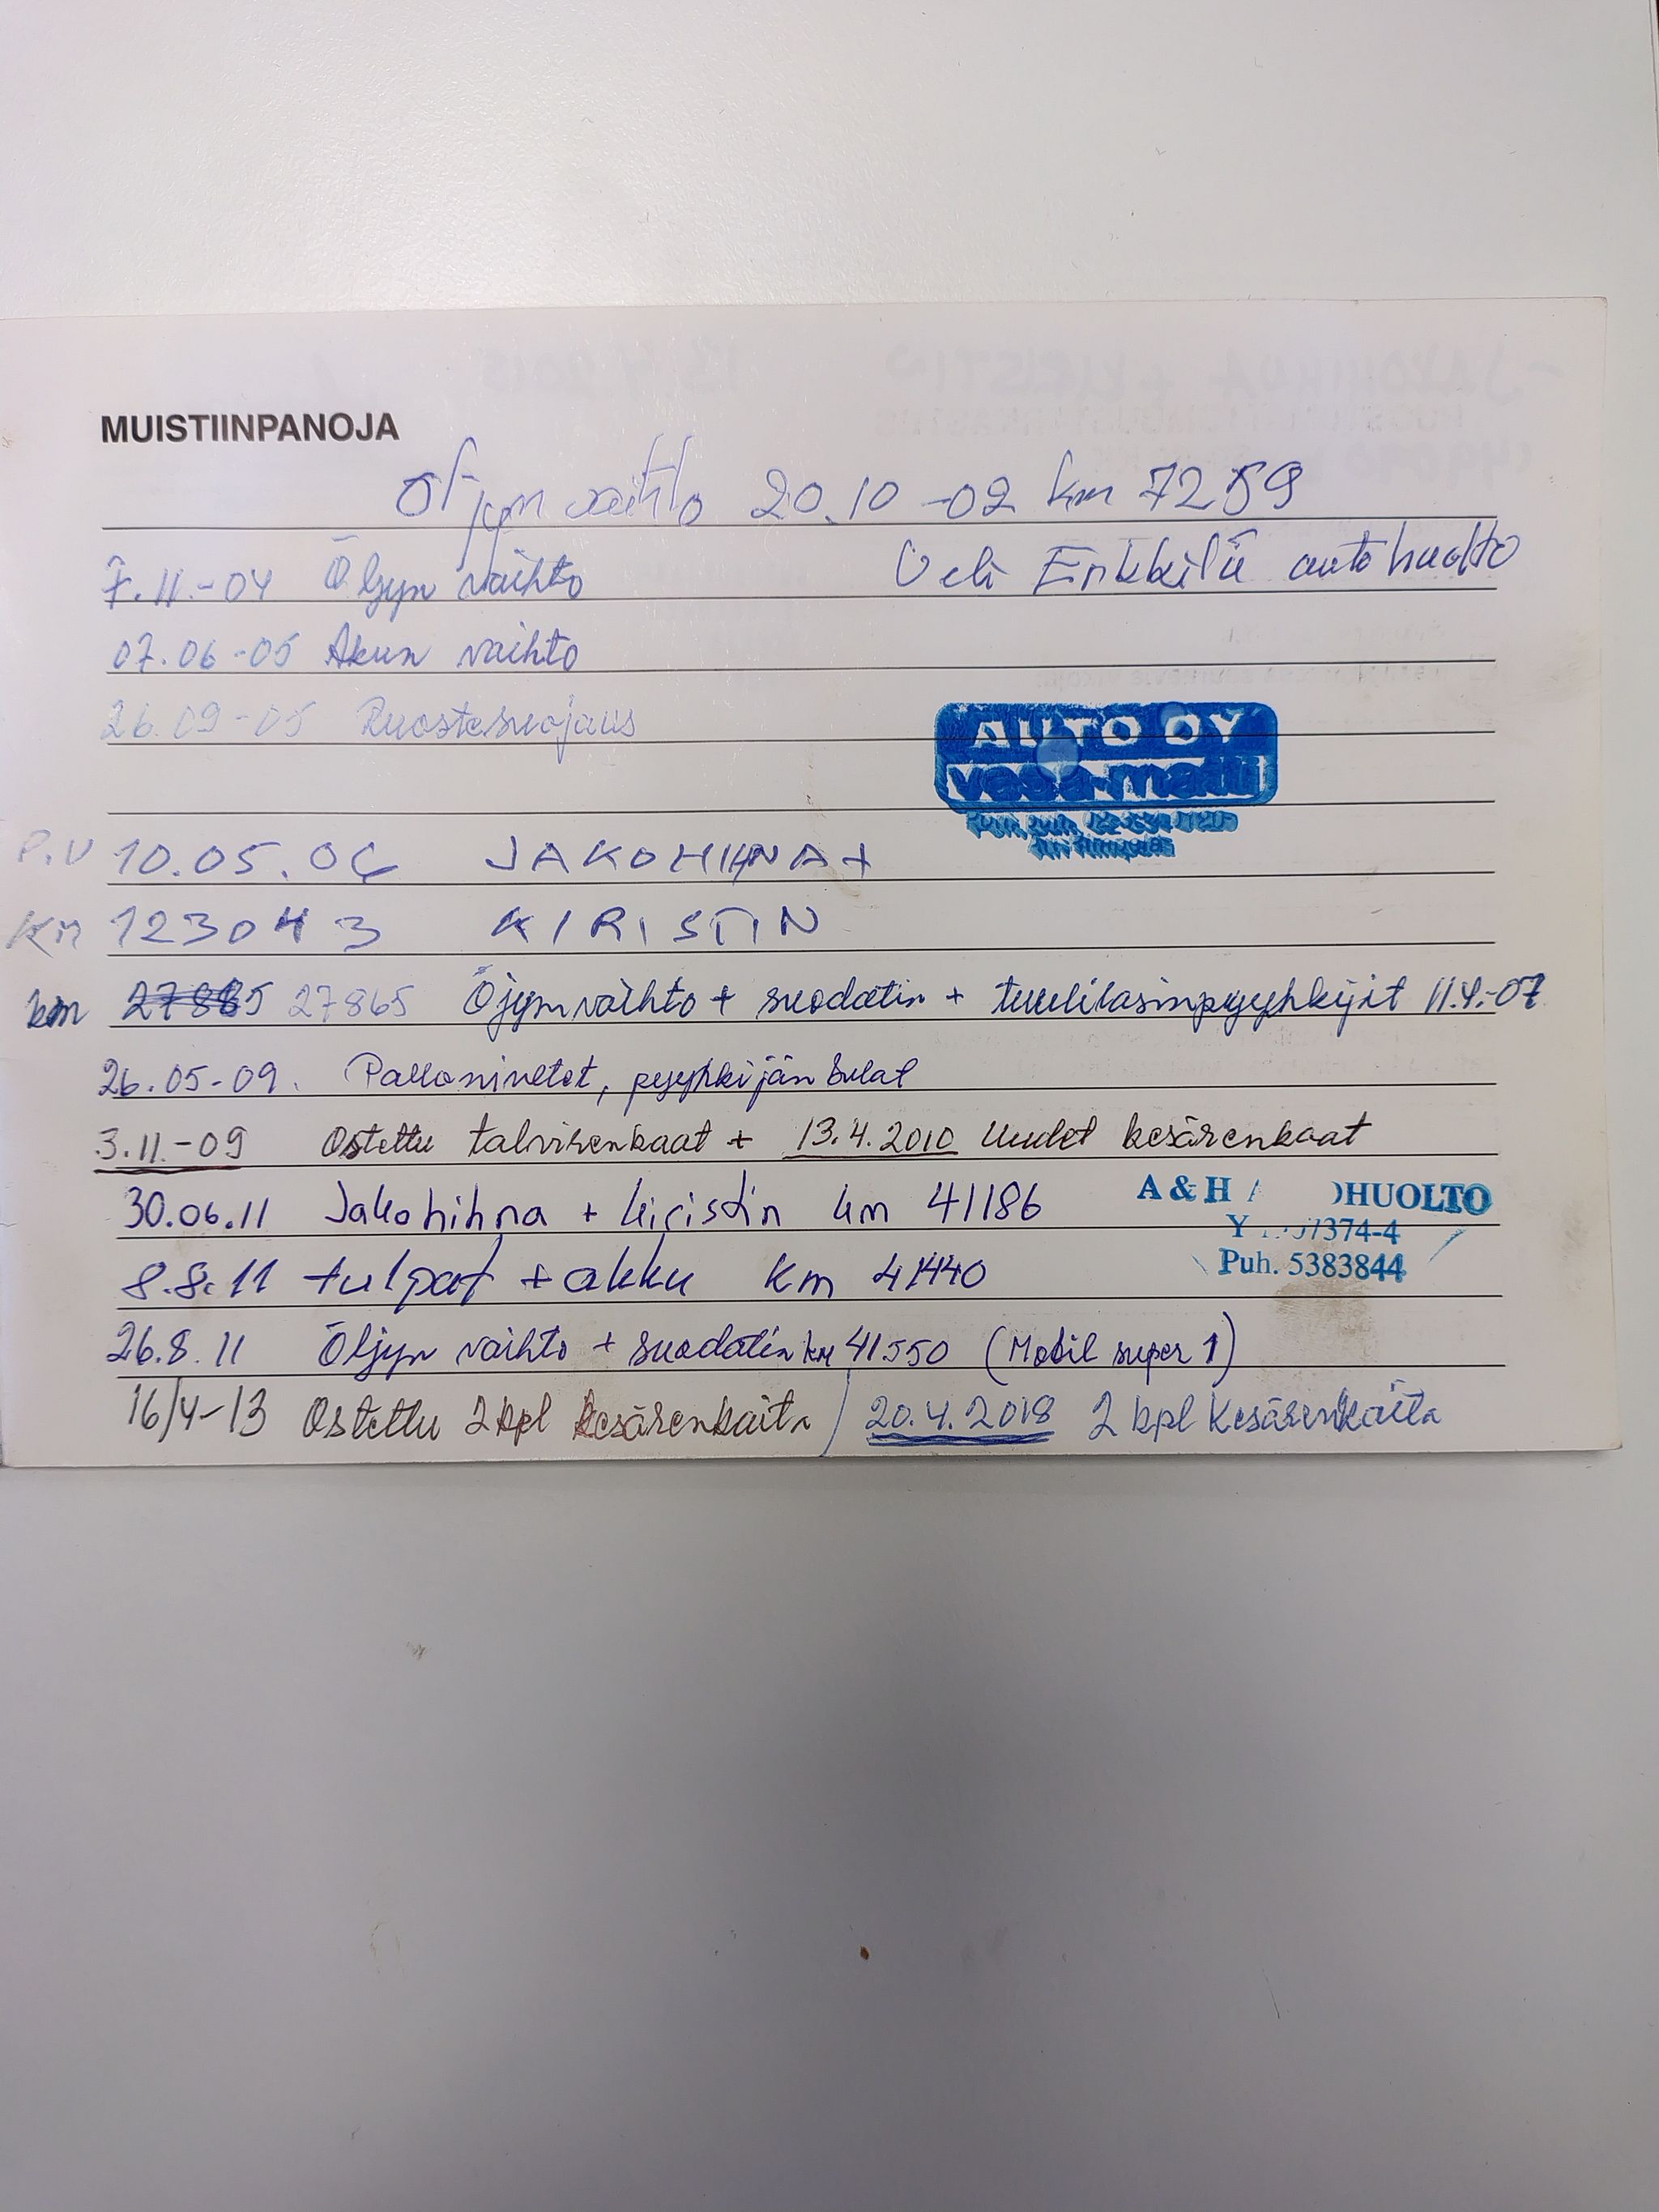 MUISTIINPANOJA
Öljyn vaihto 20.10-02 km 7259
7.11.-04 Öljyn vaihto Veli Erkkilä autohuolto
07.06-05 Akun vaihto
26.09-05 Ruostesuojaus
AUTO OY
vesa-matti
P.V 10.05.06 JAKOHIHNA +
KM 123043 KIRISTIN
km 27865 Öjynvaihto + suodatin + tuulilasinpyyhkijit 11.4.-07
26.05-09. Pallonivelet, pyyhkijän sulat
3.11.-09 Ostettu talvirenkaat + 13.4.2010 Uudet kesärenkaat
30.06.11 Jakohihna + kiristin km 41186
A & H HUOLTO
Y 7374-4
8.8.11 tulpat + akku km 41440
Puh. 5383844
26.8.11 Öljyn vaihto + suodatin km 41.550 (Mobil super 1)
16/4-13 Ostettu 2 kpl kesärenkaita / 20.4.2018 2 kpl Kesärenkaita